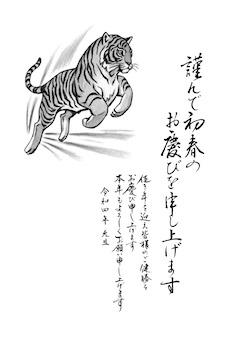 謹んで初春の
お慶びを申し上げます
佳き年を迎え皆様のご健勝を
お慶び申し上げます
本年もよろしくお願い申し上げます
令和四年 元旦